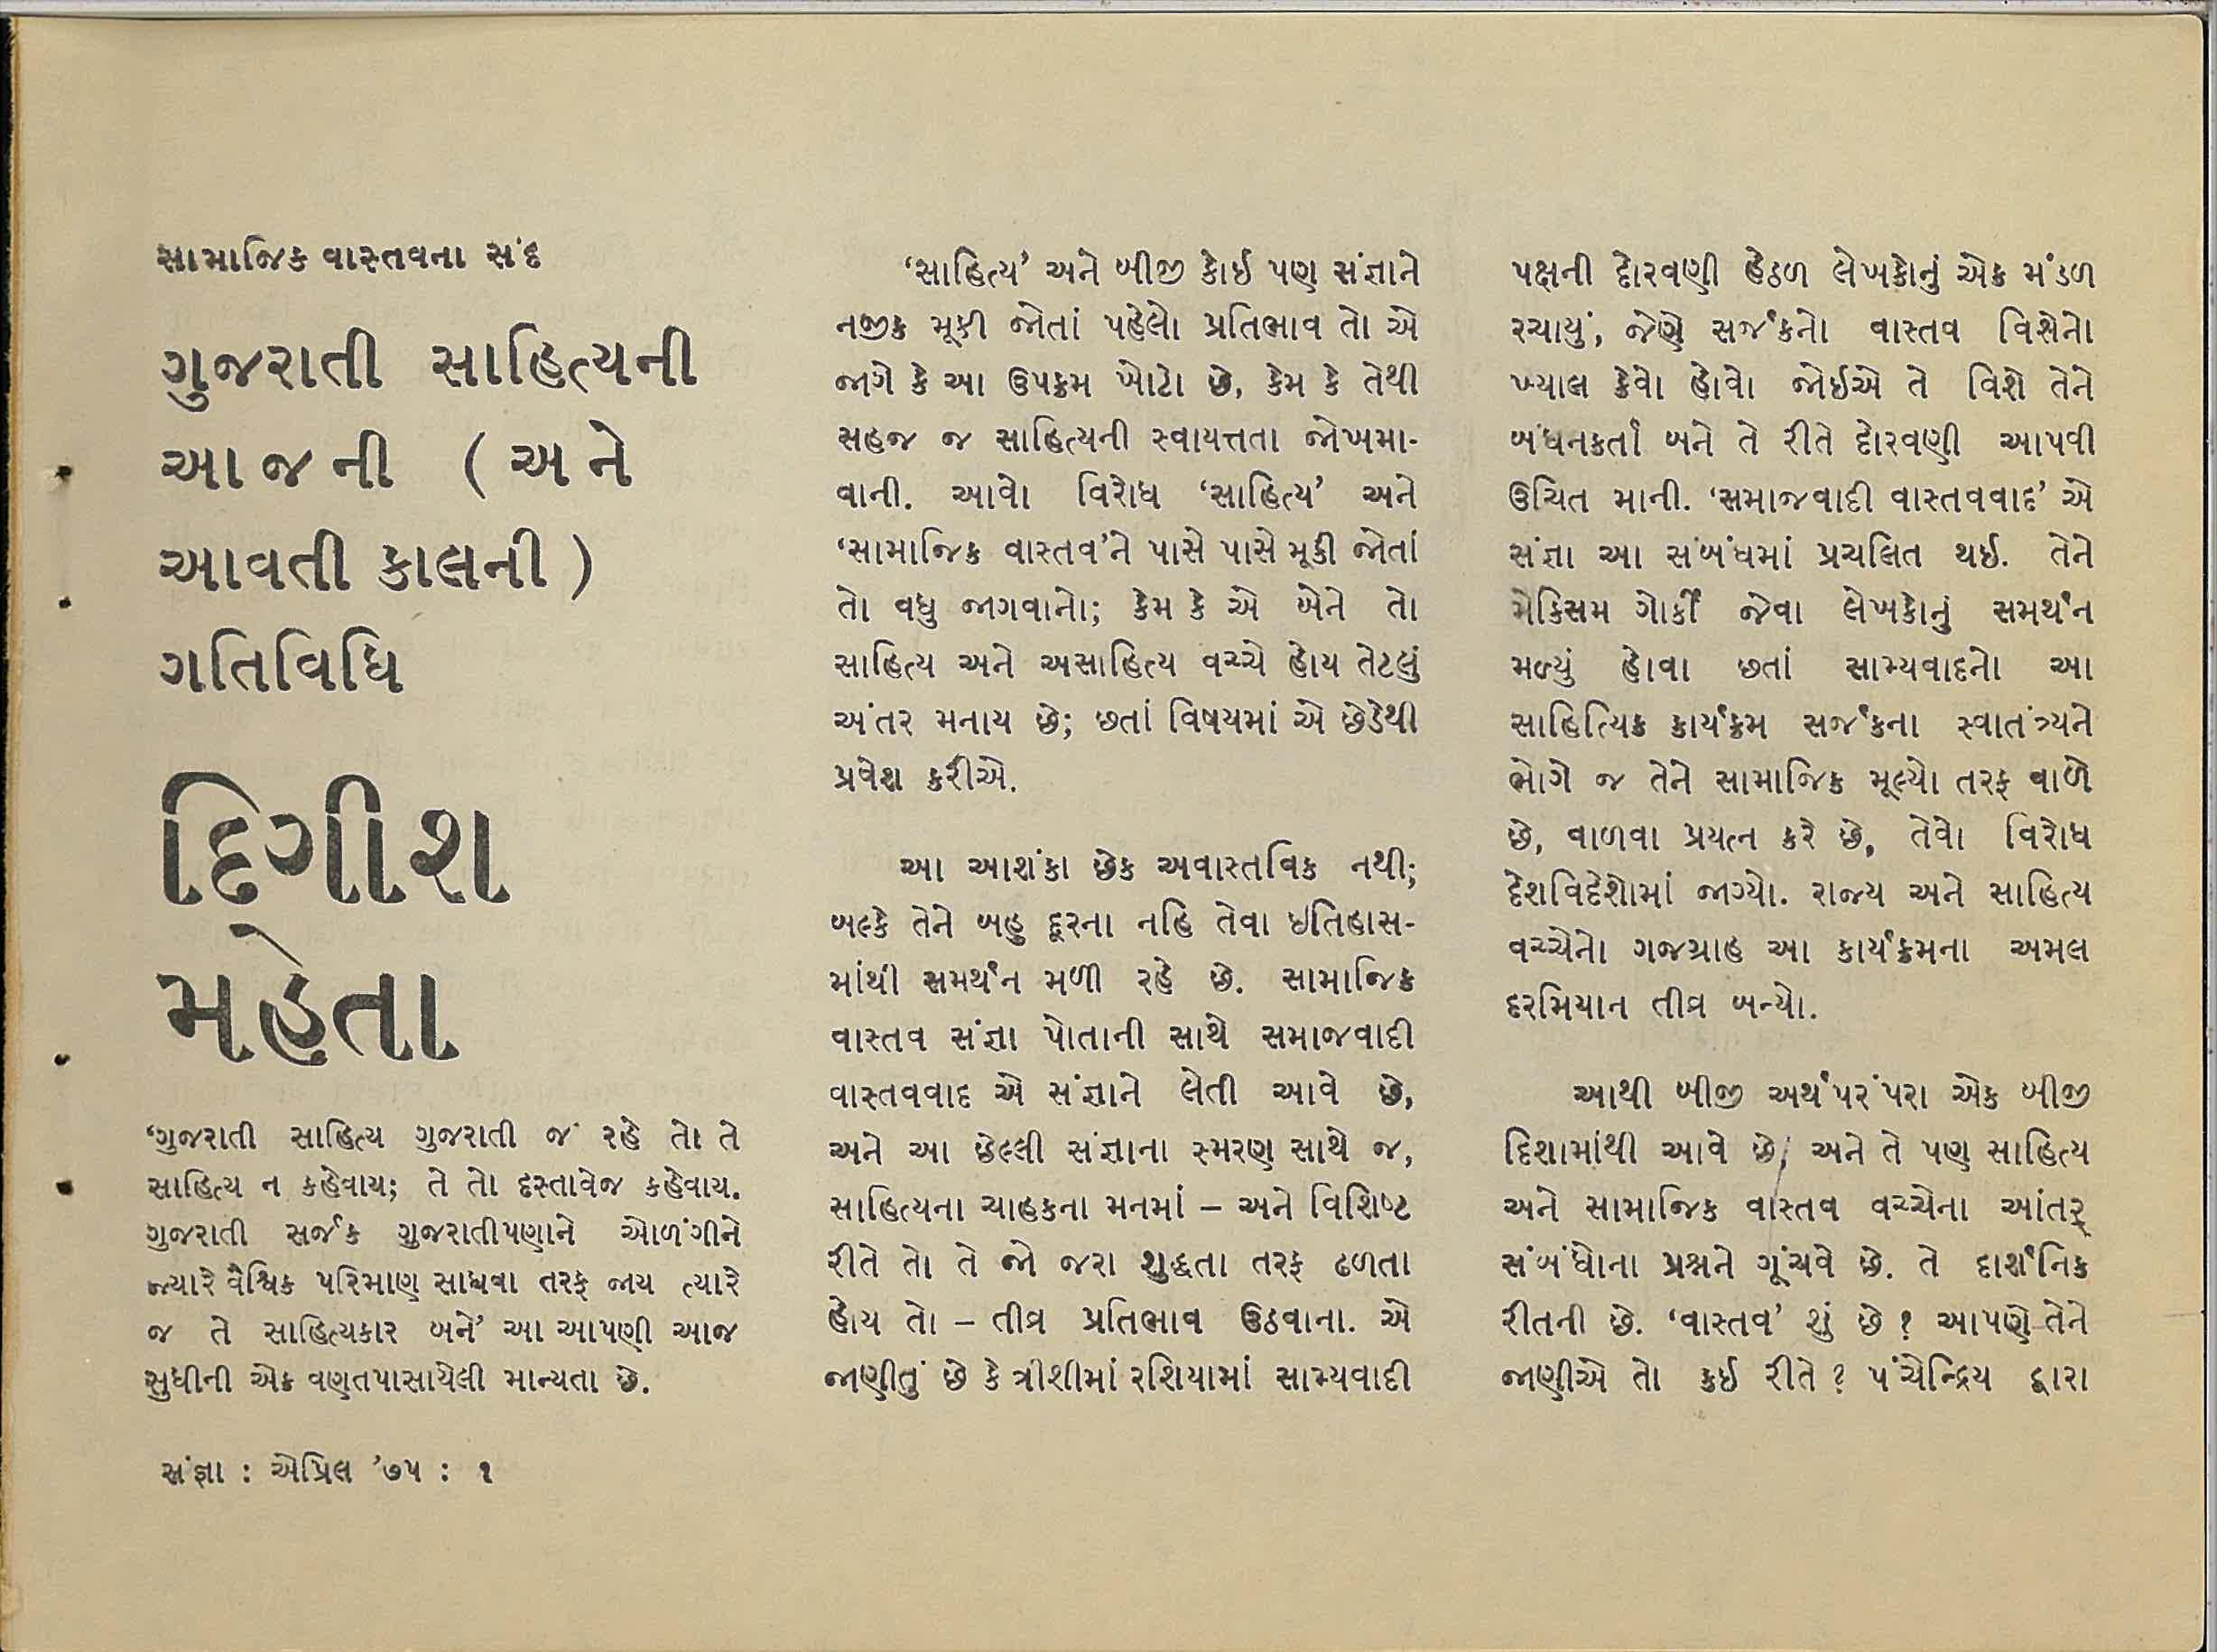 સામાજિક વાસ્તવના સંદ
ગુજરાતી સાહિત્યની
આજની (અને
આવતી કાલની)
ગતિવિધિ
દિગીશ
મહેતા
‘ગુજરાતી સાહિત્ય ગુજરાતી જ રહે તો તે
સાહિત્ય ન કહેવાય; તે તો દસ્તાવેજ કહેવાય.
ગુજરાતી સર્જક ગુજરાતીપણાને ઓળંગીને
જ્યારે વૈશ્વિક પરિમાણ સાધવા તરફ જાય ત્યારે
જ તે સાહિત્યકાર બને’ આ આપણી આજ
સુધીની એક વણતપાસાયેલી માન્યતા છે.
સંજ્ઞા : એપ્રિલ ’૭૫ : ૧
‘સાહિત્ય’ અને બીજી કોઈ પણ સંજ્ઞાને
નજીક મૂકી જોતાં પહેલો પ્રતિભાવ તો એ
જાગે કે આ ઉપક્રમ ખોટો છે, કેમ કે તેથી
સહજ જ સાહિત્યની સ્વાયત્તતા જોખમા-
વાની. આવો વિરોધ ‘સાહિત્ય’ અને
‘સામાજિક વાસ્તવ’ને પાસે પાસે મૂકી જોતાં
તો વધુ જાગવાનો; કેમ કે એ બેને તો
સાહિત્ય અને અસાહિત્ય વચ્ચે હોય તેટલું
અંતર મનાય છે; છતાં વિષયમાં એ છેડેથી
પ્રવેશ કરીએ.
આ આશંકા છેક અવાસ્તવિક નથી;
બલ્કે તેને બહુ દૂરના નહિ તેવા ઇતિહાસ-
માંથી સમર્થન મળી રહે છે. સામાજિક
વાસ્તવ સંજ્ઞા પોતાની સાથે સમાજવાદી
વાસ્તવવાદ એ સંજ્ઞાને લેતી આવે છે,
અને આ છેલ્લી સંજ્ઞાના સ્મરણ સાથે જ,
સાહિત્યના ચાહકના મનમાં – અને વિશિષ્ટ
રીતે તો તે જો જરા શુદ્ધતા તરફ ઢળતા
હોય તો – તીવ્ર પ્રતિભાવ ઉઠવાના. એ
જાણીતું છે કે ત્રીશીમાં રશિયામાં સામ્યવાદી
પક્ષની દોરવણી હેઠળ લેખકોનું એક મંડળ
રચાયું, જેણે સર્જકનો વાસ્તવ વિશેનો
ખ્યાલ કેવો હોવો જોઈએ તે વિશે તેને
બંધનકર્તા બને તે રીતે દોરવણી આપવી
ઉચિત માની. ‘સમાજવાદી વાસ્તવવાદ’ એ
સંજ્ઞા આ સંબંધમાં પ્રચલિત થઈ. તેને
મેક્સિમ ગોર્કી જેવા લેખકોનું સમર્થન
મળ્યું હોવા છતાં સામ્યવાદનો આ
સાહિત્યિક કાર્યક્રમ સર્જકના સ્વાતંત્ર્યને
ભોગે જ તેને સામાજિક મૂલ્યો તરફ વાળે
છે, વાળવા પ્રયત્ન કરે છે, તેવો વિરોધ
દેશવિદેશોમાં જાગ્યો. રાજ્ય અને સાહિત્ય
વચ્ચેનો ગજગ્રાહ આ કાર્યક્રમના અમલ
દરમિયાન તીવ્ર બન્યો.
આથી બીજી અર્થપરંપરા એક બીજી
દિશામાંથી આવે છે, અને તે પણ સાહિત્ય
અને સામાજિક વાસ્તવ વચ્ચેના આંતર્
સંબંધોના પ્રશ્નને ગૂંચવે છે. તે દાર્શનિક
રીતની છે. ‘વાસ્તવ’ શું છે ? આપણે તેને
જાણીએ તો કઈ રીતે ? પંચેન્દ્રિય દ્વારા